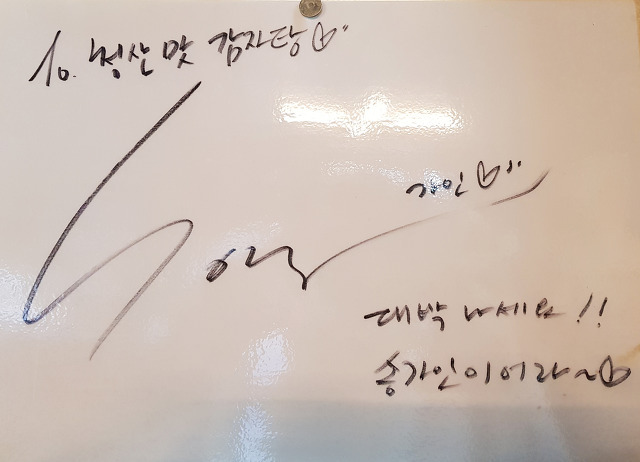 To. 청산 맛 감자탕♡..
가인♡..
대박 나세요!!
송가인이어라~♡